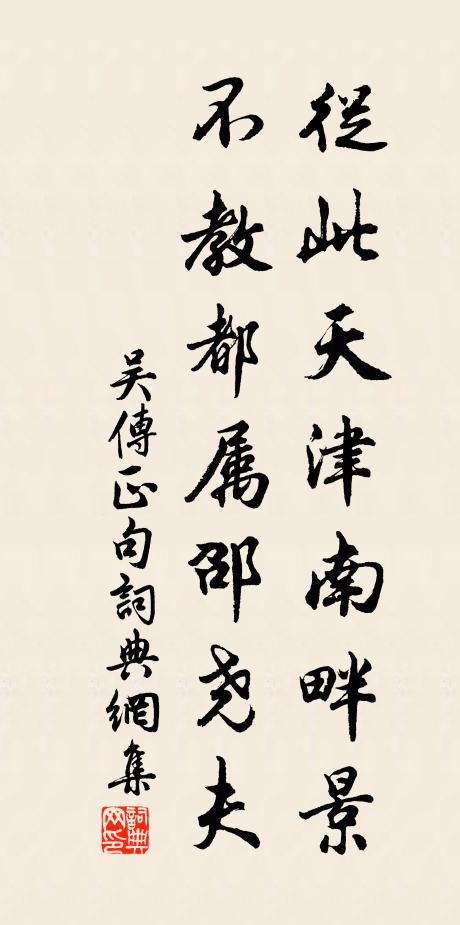 從此天津南畔景
不教都属邵尧夫
吴傳正句詞典網集
詞典网印